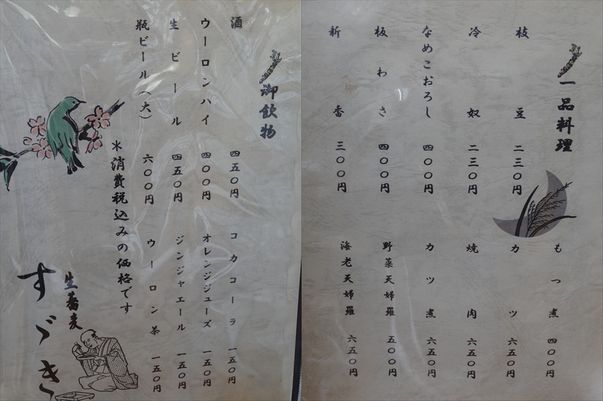 一品料理
枝豆 二三〇円
冷奴 二三〇円
なめこおろし 四〇〇円
板わさ 四〇〇円
新香 三〇〇円
もつ煮 四〇〇円
カツ 六五〇円
焼肉 六五〇円
カツ煮 六五〇円
野菜天婦羅 五〇〇円
海老天婦羅 六五〇円
御飲物
酒 四五〇円
ウーロンハイ 四〇〇円
生ビール 四五〇円
瓶ビール(大) 六〇〇円
コカコーラ 一五〇円
オレンジジュース 一五〇円
ジンジャエール 一五〇円
ウーロン茶 一五〇円
*消費税込みの価格です
生蕎麦
すゞき